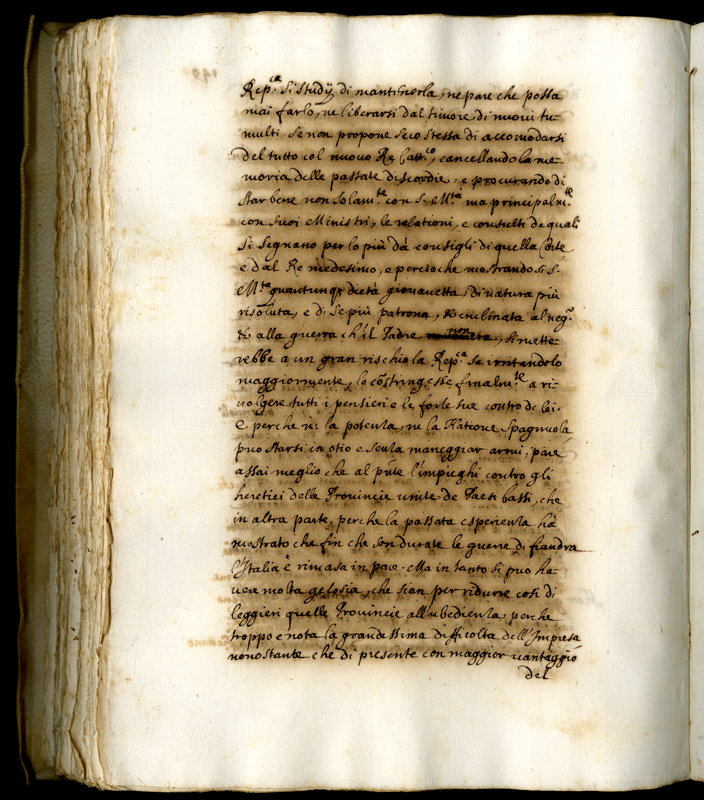 Rep.ca si studij di mantenerla, ne pare che possa
mai farlo, ne liberarsi dal timore di nuovi tu-
multi, se non propone seco stessa di accomodarsi
del tutto col nuovo Re Catt.co, cancellando la me-
moria delle passate discordie, e procurando di
star bene non solam.te con S. M.tà ma principalm.te
con suoi Ministri, le relationi, e consulti de quali
si segnano per lo più dà consigli di quella Corte
e dal Re medesimo, e percioche mostrandosi S.
M.tà quantunq. d'età giovanetta, di natura più
risoluta, e di se più patrona, ed inclinata al neg.
et alla guerra ch'il Padre non era, si mette-
rebbe a un gran rischio la Rep.ca se irritandolo
maggiormente, lo cõstringesse finalm.te a ri-
volgere tutti i pensieri e le forze sue contro de lei.
E perche nè la potenza, ne la Natione Spagnuola
può starsi in otio e senza maneggiar armi, pare
assai meglio che al pñte l'impieghi contro gli
heretici delle Provincie unite de Paesi bassi, che
in altra parte, perche la passata esperienza hà
mostrato che fin che son durate le guerre di fiandra
l'Italia è rimasa in pace. Ma in tanto si può ha-
vere molta gelosia, che sian per ridurre così di
leggieri quelle Provincie all'ubedienza, perche
troppo e nota la grandissima difficoltà dell'Impresa
nonostante che di presente con maggior vantaggio
del